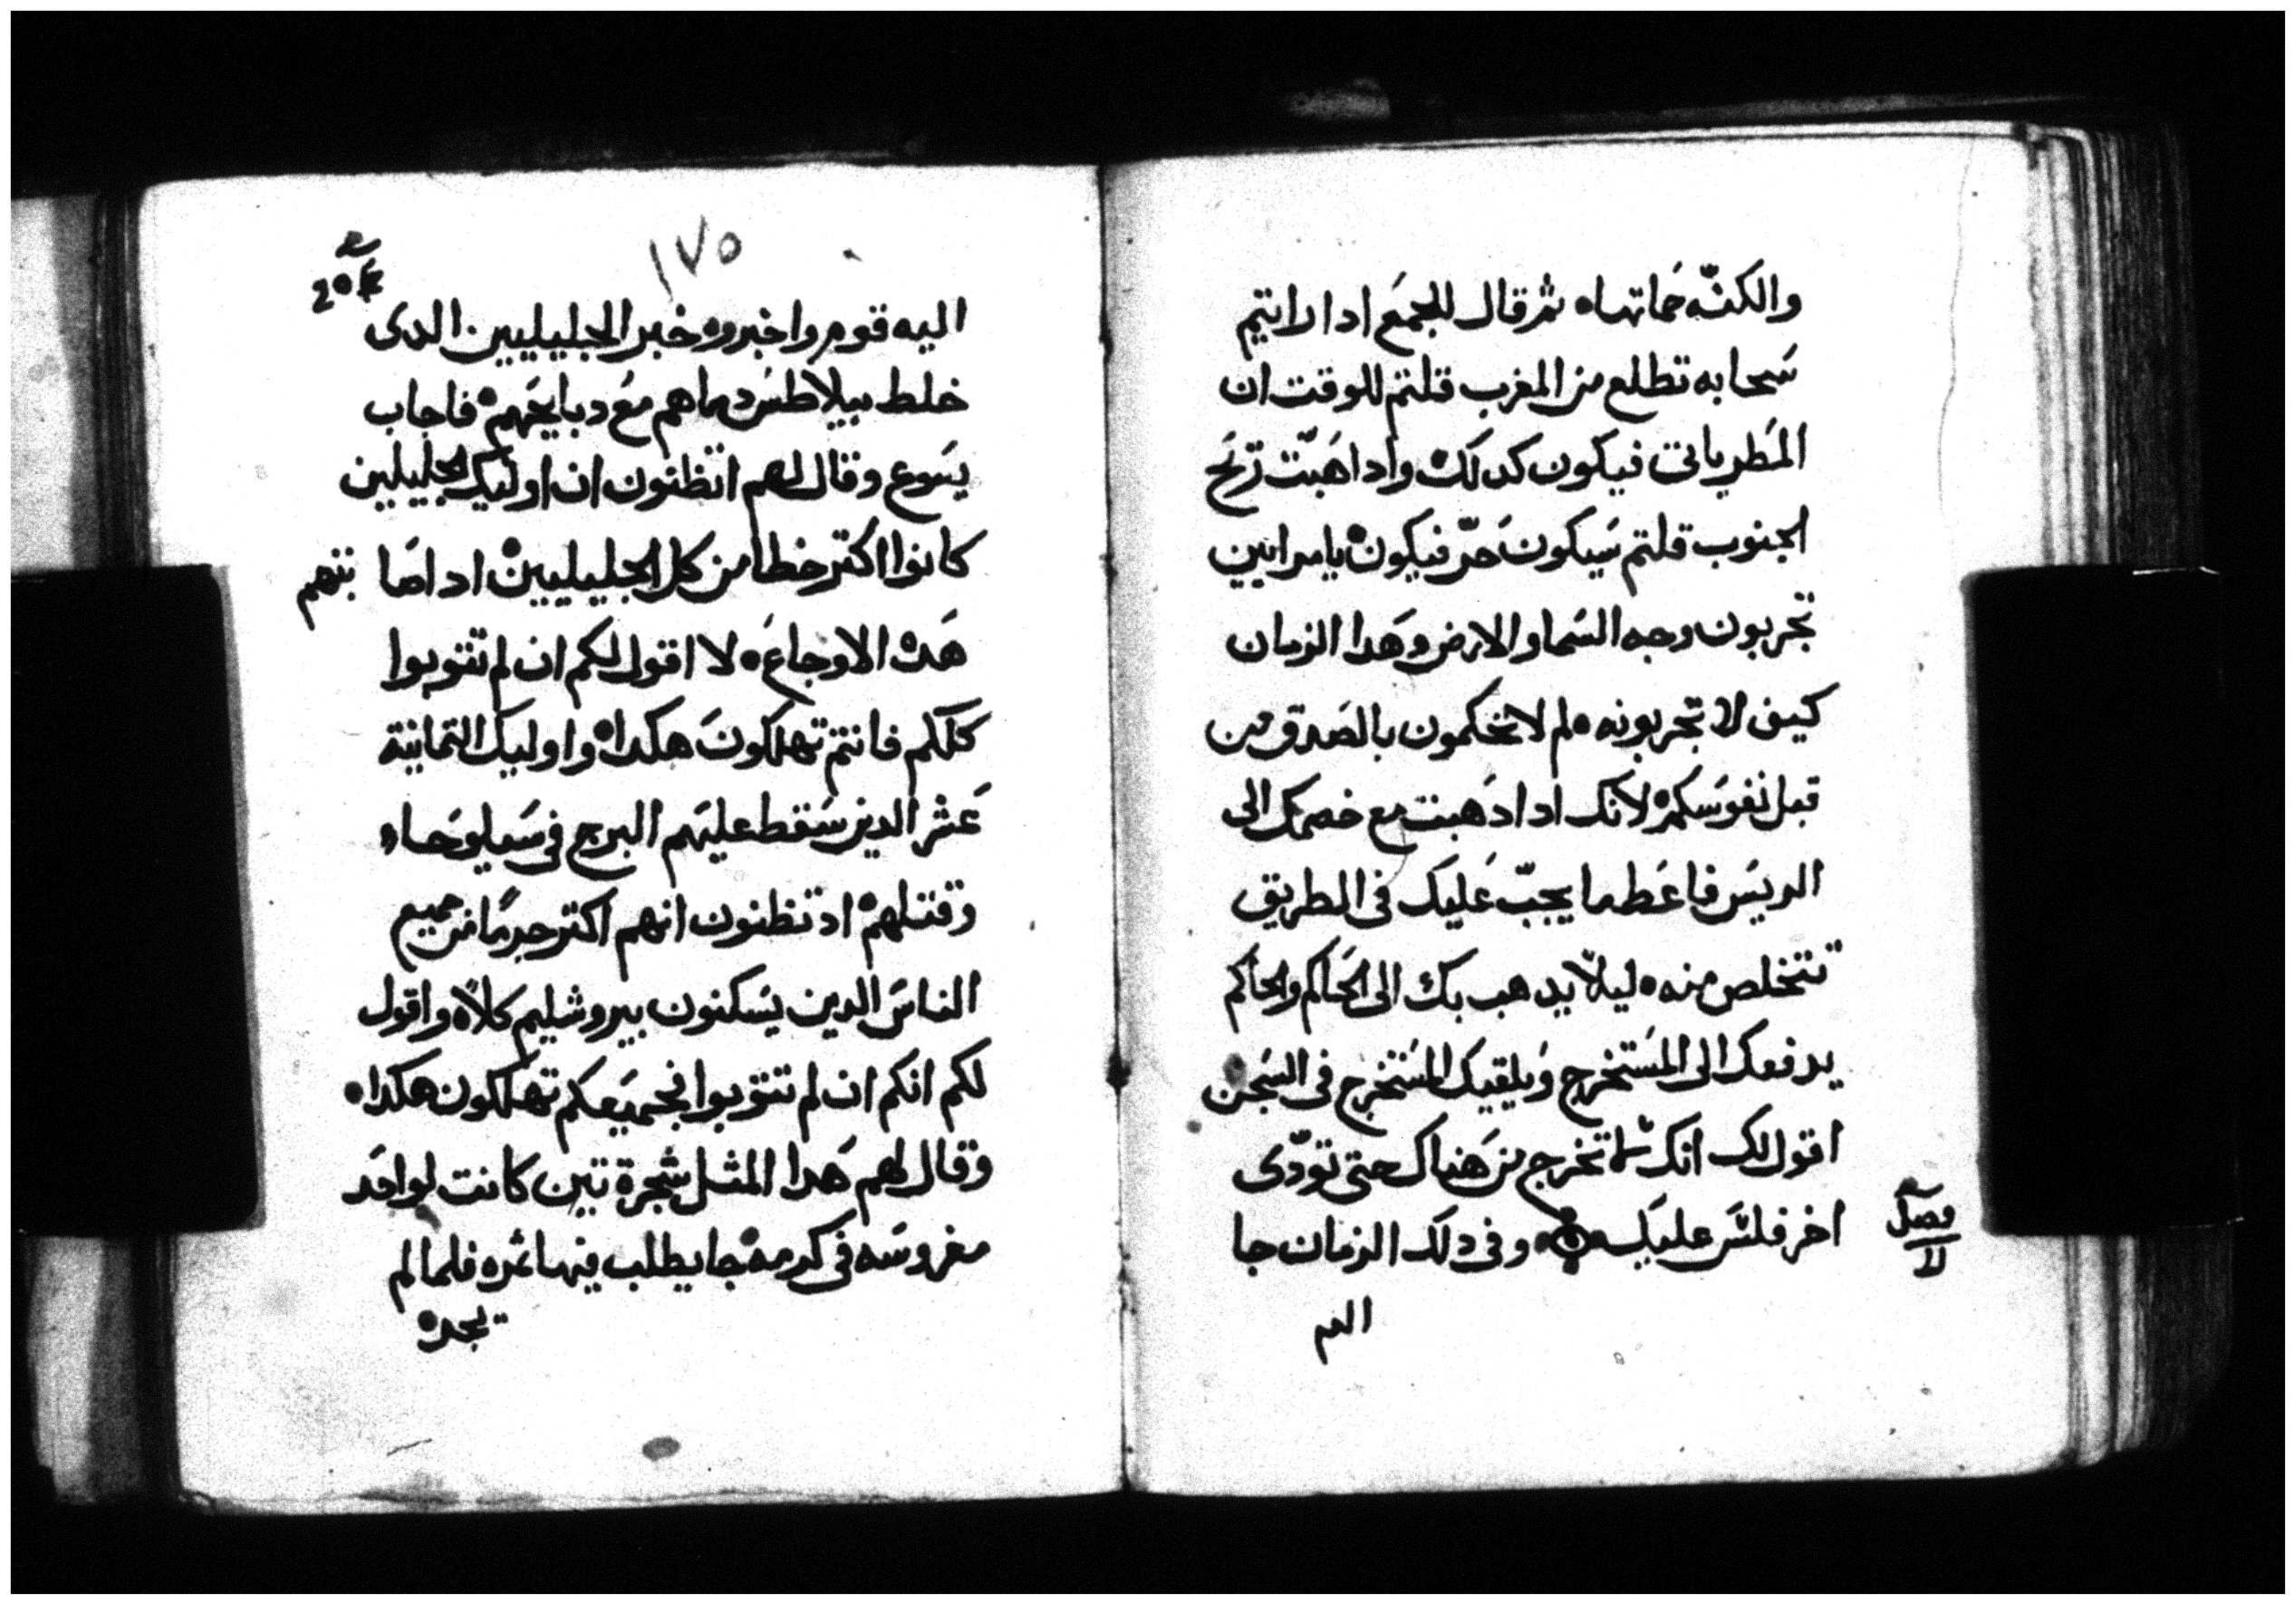 والكنّه حَماتها ٥ ثم قال للجمَع ادا رايتم
سَحابه تطلع من المغرب قلتم للوقت ان
المَطر ياتى فيكون كدلك ٥ وادا هَبّت ريَح
الجنوب قلتم سَيكون حَرّ فيكون ٥ يا مرايين
تجربون وجه السَما والارض وهَدا الزمان
كيف لا تجربونه ٥ لم لا تحكمون بالصَدق من
قبل نفوسَكم ٥ لانك ادا دَهبت مع خصمك الى
الريسَ فاعَط ما يجبّ عَليك فى الطريق
تتخلص منه ٥ ليلاّ يدهب بك الى الحَاكم والحاكم
يدفعك الى المسَتخرج وَيلقيك المسَتخرج فى السَجن
اقول لك انك ما تخرج من هَناك حتى تودّى
اخر فلسَ عليك ٥ وفى دلك الزمان جا
فصل
اليه
١٧٥
اليه قوم واخبروه خبر الجليليين الدى
خلط بيلاطسَ دماهم مَع دبايحَهم ٥ فاجاب
يسَوع وقال لهم اتظنون ان اوليك الجليلين
كانوا اكتر خطا من كل الجليليين ٥ اد اصَابتهم
هَده الاوجاعَ ٥ لا اقول لكم ان لم تتوبوا
كلكم فانتم تهلكونَ هكدا ٥ واوليكَ التمانية
عَشر الدين سَقط عليهَم البرج فى سَيلوحَا
وقتلهم ٥ اد تظنون انهم اكتر جرمًا من جميع
الناسَ الدين يسَكنون بيروشليم كلاً ٥ واقول
لكم انكم ان لم تتوبوا فجميَعكم تهلكون هكدا ٥
وقال لهم هَدا المثل شجرة تين كانت لواحَد
مغروسَه فى كرمه ٥ جا يطلب فيها ثمره فلما لم
يجد ٥